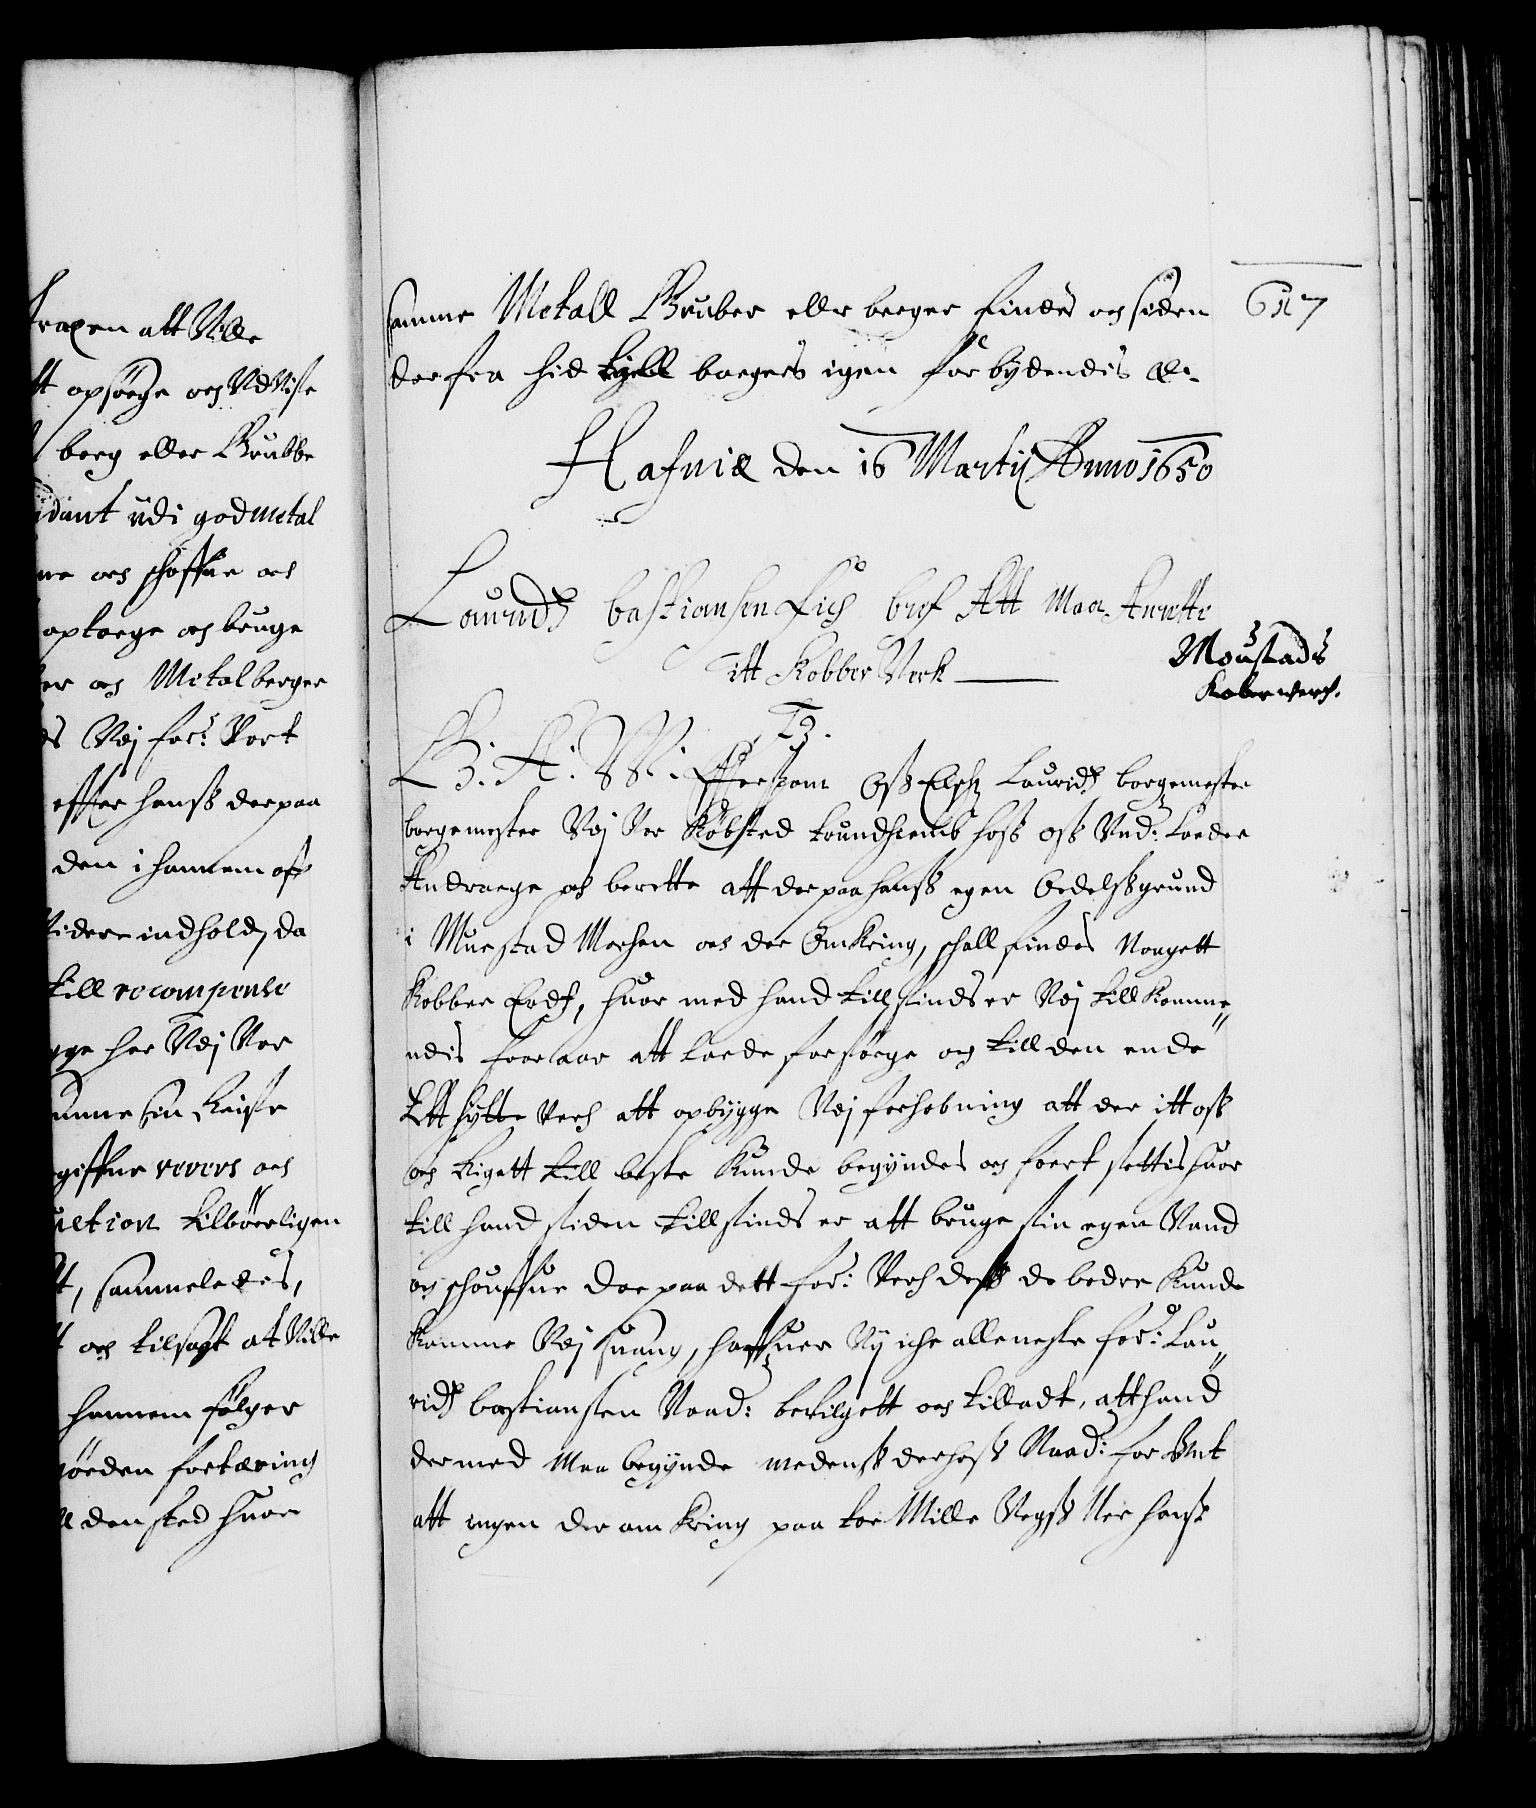 traxen att Ville
tt opsøege och Udvise
berg eller Grubbe
dant udi god metal
ne och schaffue och
optaege och bruge
er och Metalberger
ds Vej for: Vort
effter hanss derpaa
den i hannem oss
videre indhold, da
till recompense
gge her Vej Vor
unne sin Reise
giffne revers och
uction tilbøerligen
t, sammeledes,
t och tilsagt at Ville
hannem følger
tøeden fortæring
ll den sted huor
617
samme Metall Gruber eller berger findes och siden
der fra hid till baeges igen forbydendis etc.
Hafniæ den 16 Martij Anno 1650
Lauridz bastiansen fich bref Att Maa Anrette
itt Kobber Verk
Moustads
Kaber werch.
F3.
G. A. W. Effterssom Oss Elsch: Lauridz borgemester
borgemester Vej Vor Købsted Trundhiembs hoss oss Und: Laeder
Andraege och berette att der paa hanss egen Oedelssgrund
i Muestad Marchen och der Omkring, schall findes Naagett
Kobber Ertz, huor med hand till sinds er Vej till Komme„
ndis foer aar att Laede forsøege och till den ende
Ett hytte Verch att opbygge Vej forhobning att der itt oss
och Riget till beste Kunde begyndes och foert settis huor
till hand siden till sinds er att bruge sin egen Vand
och schouffue der paa dett for: Verch dess de bedre Kunde
Komme Vej suang, haffuer Vj iche alleneste for: Lau„
ridz bastiansen Naad: bevilgett och tilladt, att hand
dermed Maa begynde medenss derhoss Naad: for Undt
att ingen der om Kring paa toe Mille Vegss Ner hanss